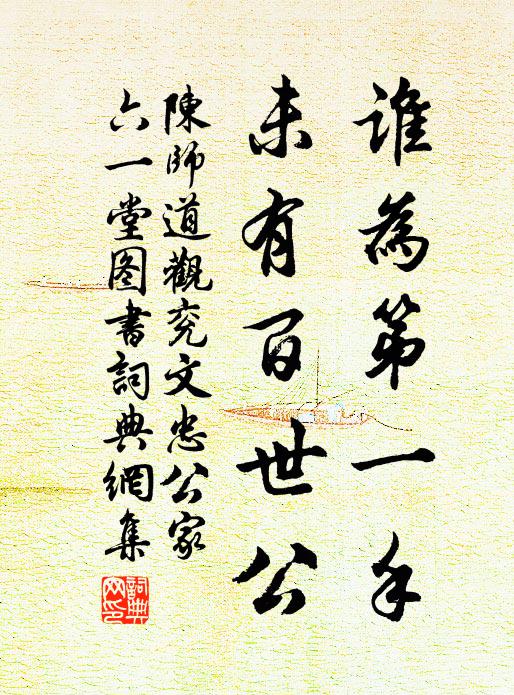 誰為第一手
未有百世公
陳師道觀兖文忠公家
六一堂图書詞典網集
詞典网印